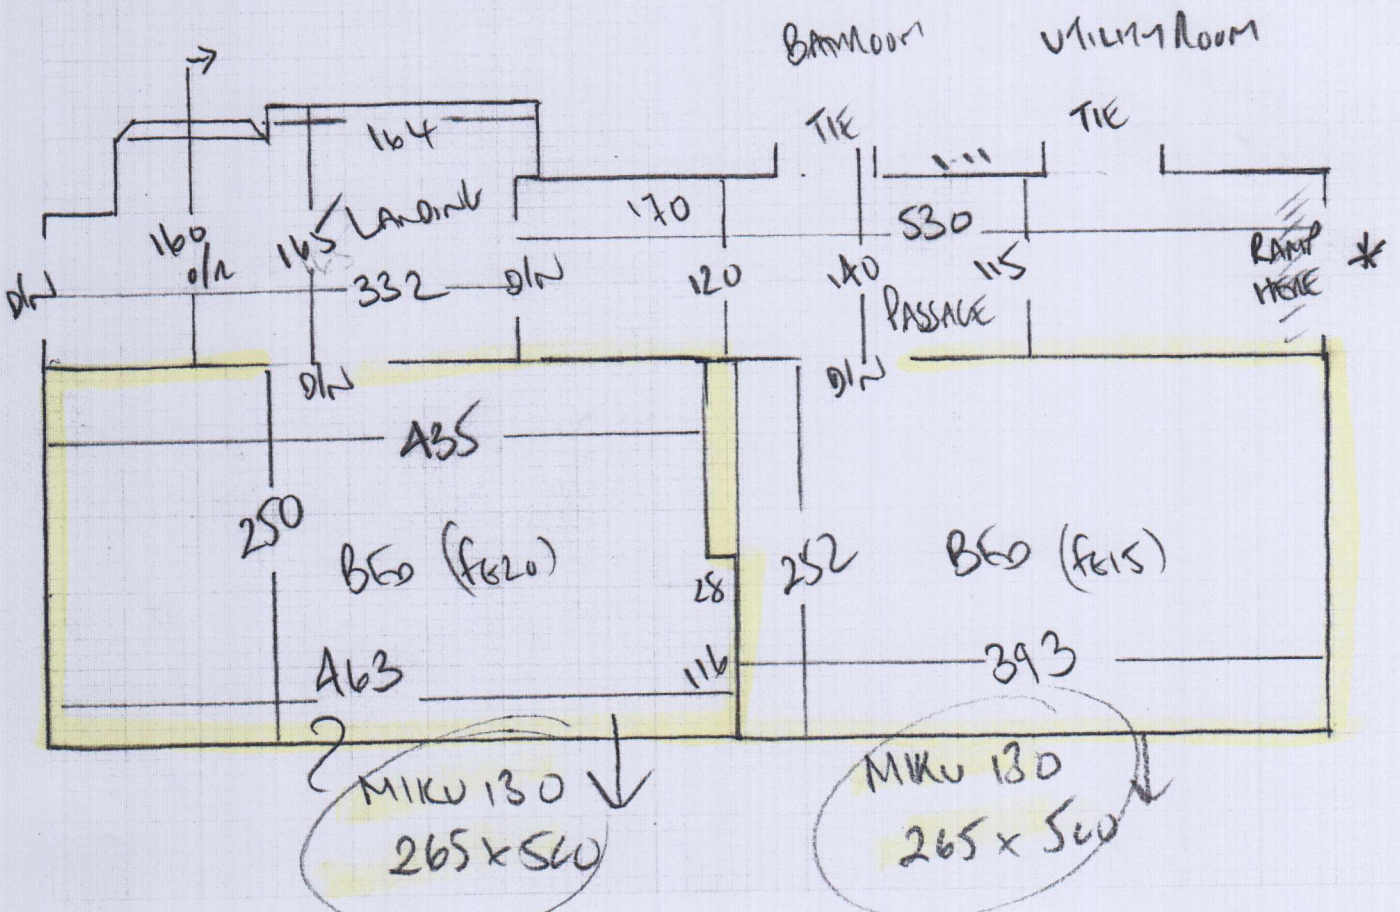 BATHROOM
UTILITY ROOM
TIE
TIE
164
LANDING
170
530
160
O/R
165
D/N
332
D/N
120
140
115
RAMP
HERE
*
PASSAGE
D/N
D/N
435
250
BED (FE20)
28
252
BED (FE15)
463
116
393
MIKU 130
265 x 500
MIKU 130
265 x 500